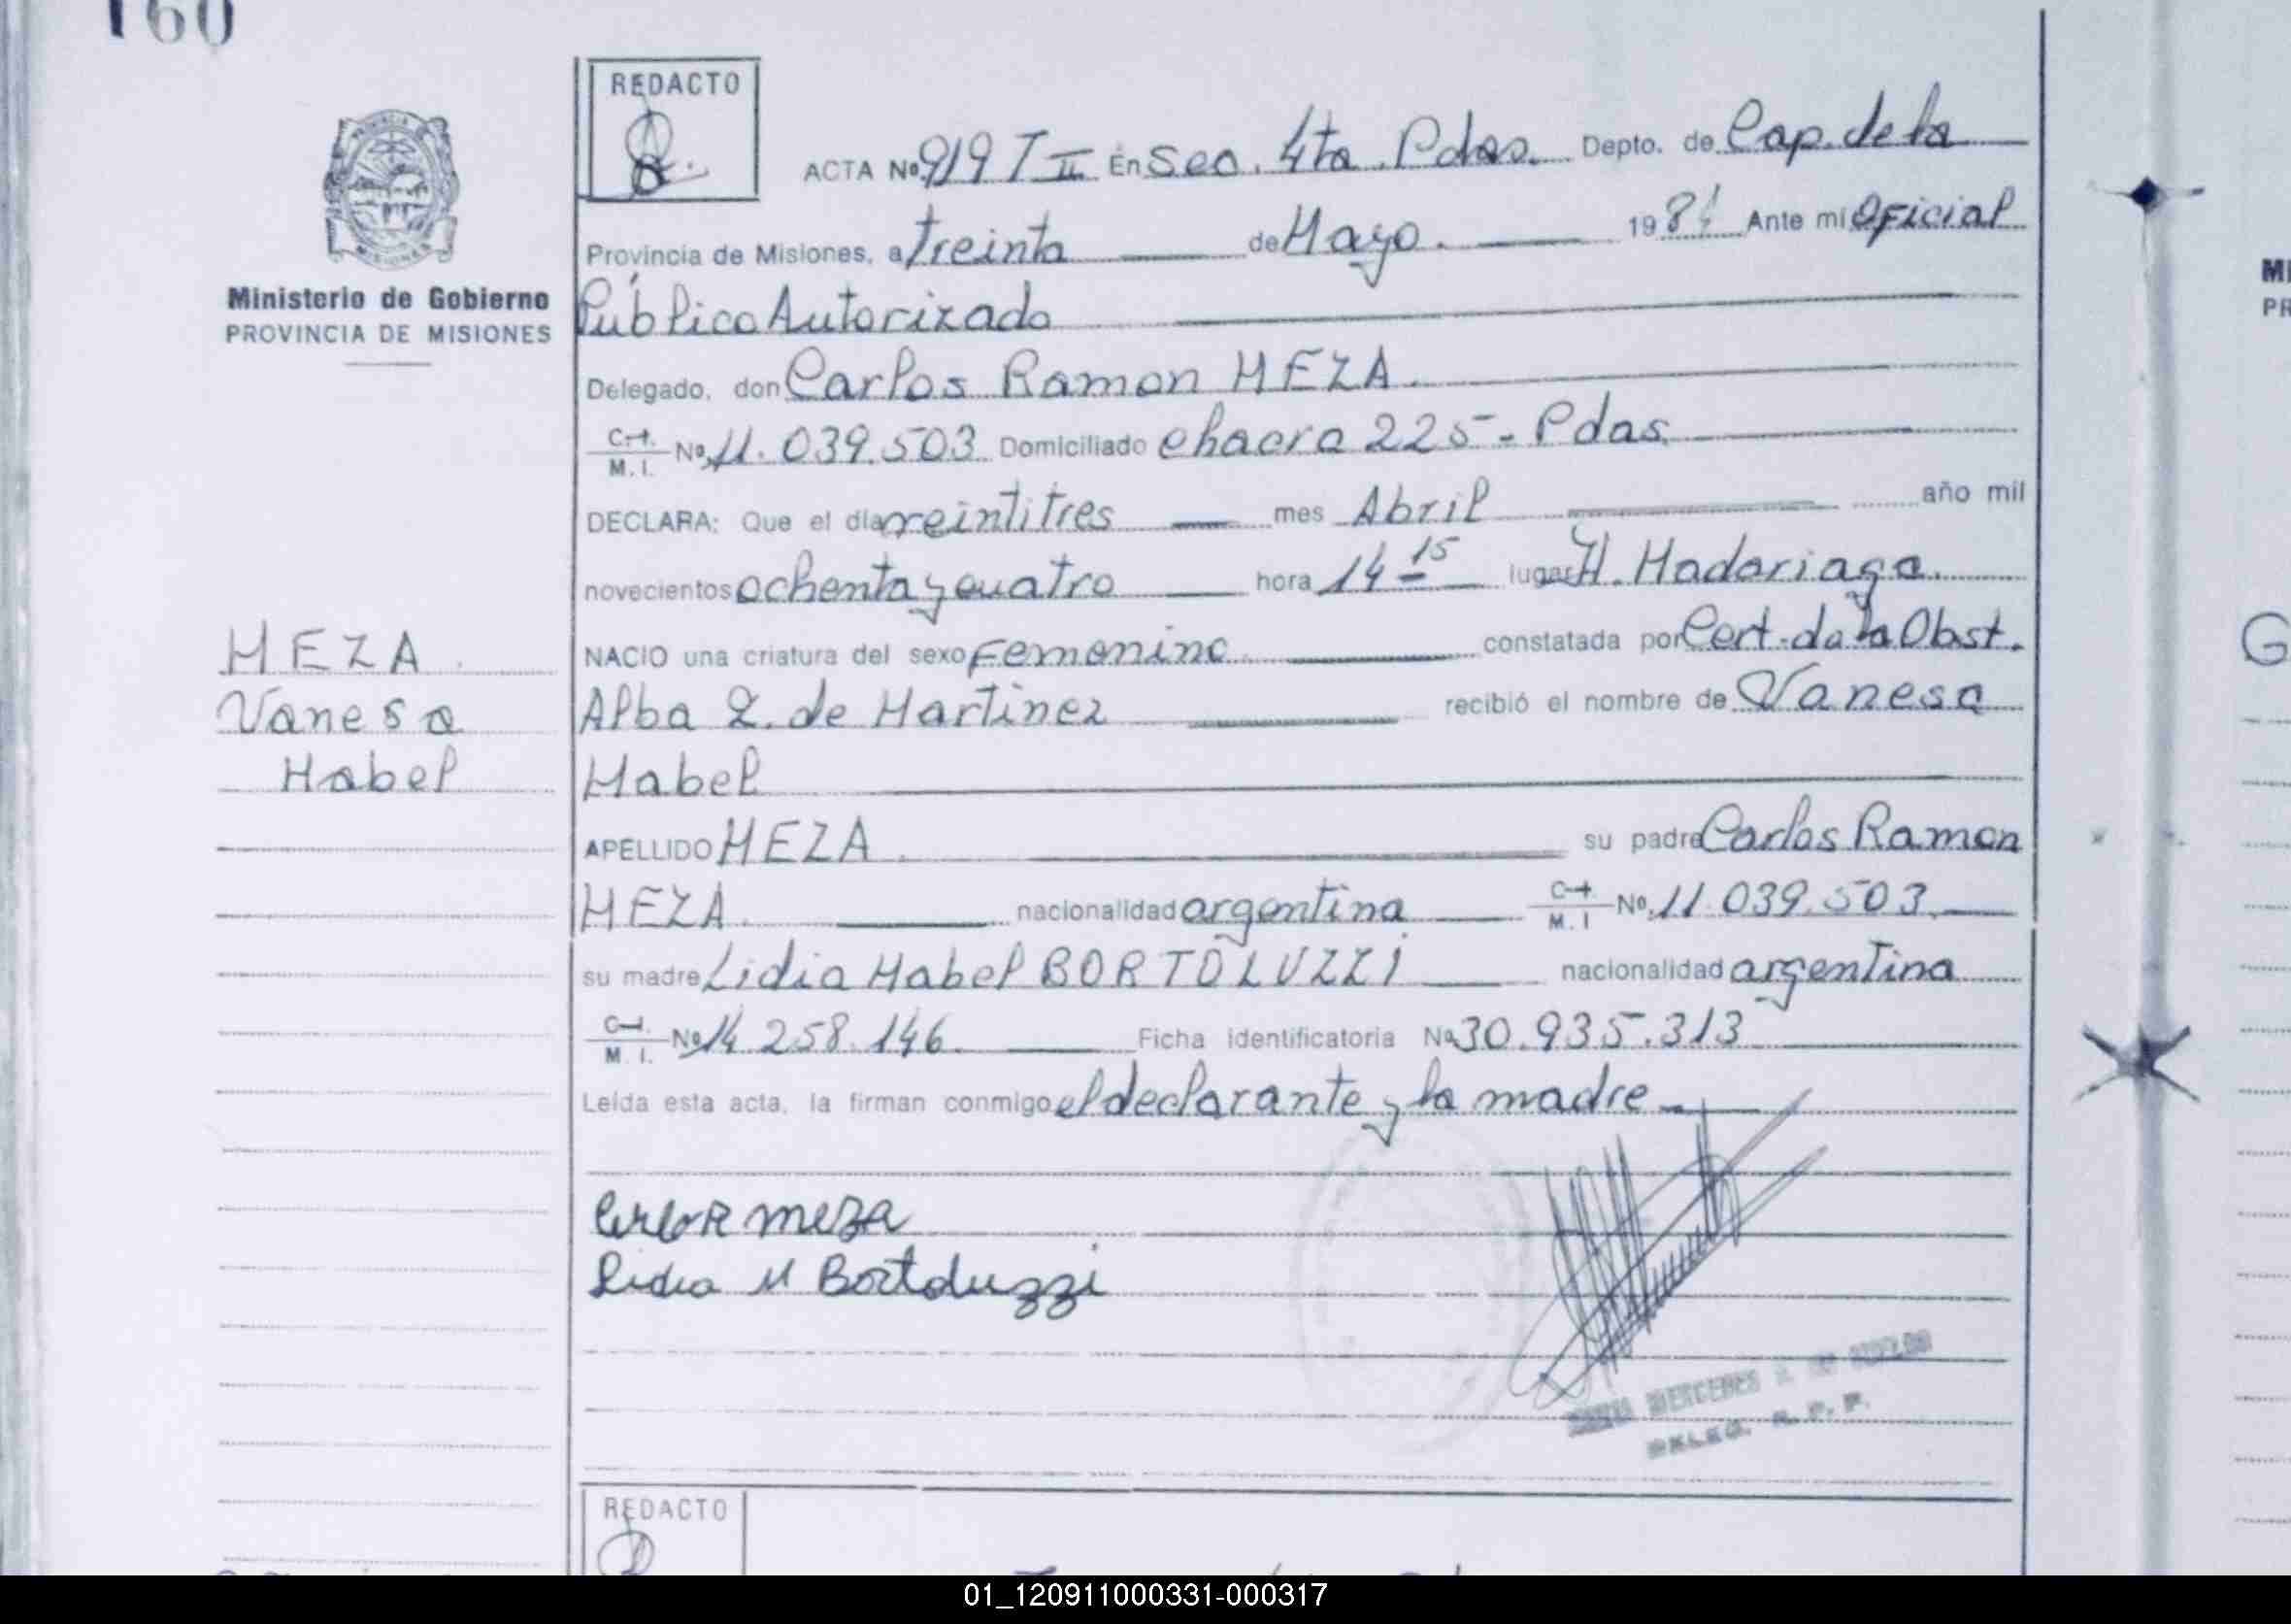 160
REDACTO
ACTA Nº 919 T II En Sec. 4ta. Pdas. Depto. de Cap. de la
Provincia de Misiones, a treinta de Mayo. 1984 Ante mi Oficial
Ministerio de Gobierno
PROVINCIA DE MISIONES
Público Autorizado
Delegado, don Carlos Ramon MEZA.
C.I. M.I. Nº 11.039.503 Domiciliado chacra 225 - Pdas.
DECLARA: Que el día veintitres mes Abril año mil
novecientos ochenta y cuatro hora 14 - 15 lugar H. Madariaga.
MEZA
Vanesa
Mabel
NACIO una criatura del sexo Femenino. constatada por Cert. de la Obst.
Alba Z. de Martinez recibió el nombre de Vanesa
Mabel
APELLIDO MEZA. su padre Carlos Ramon
MEZA. nacionalidad argentina C.I. M.I Nº 11.039.503.
su madre Lidia Mabel BORTOLUZZI nacionalidad argentina
C.I. M.I. Nº 14.258.146. Ficha identificatoria Nº 30.935.313
Leída esta acta, la firman conmigo el declarante y la madre.
Carlos R Meza
Lidia M Bortoluzzi
MERCEDES
DELEG. R. P. P.
REDACTO
MI
PR
G
01_120911000331-000317